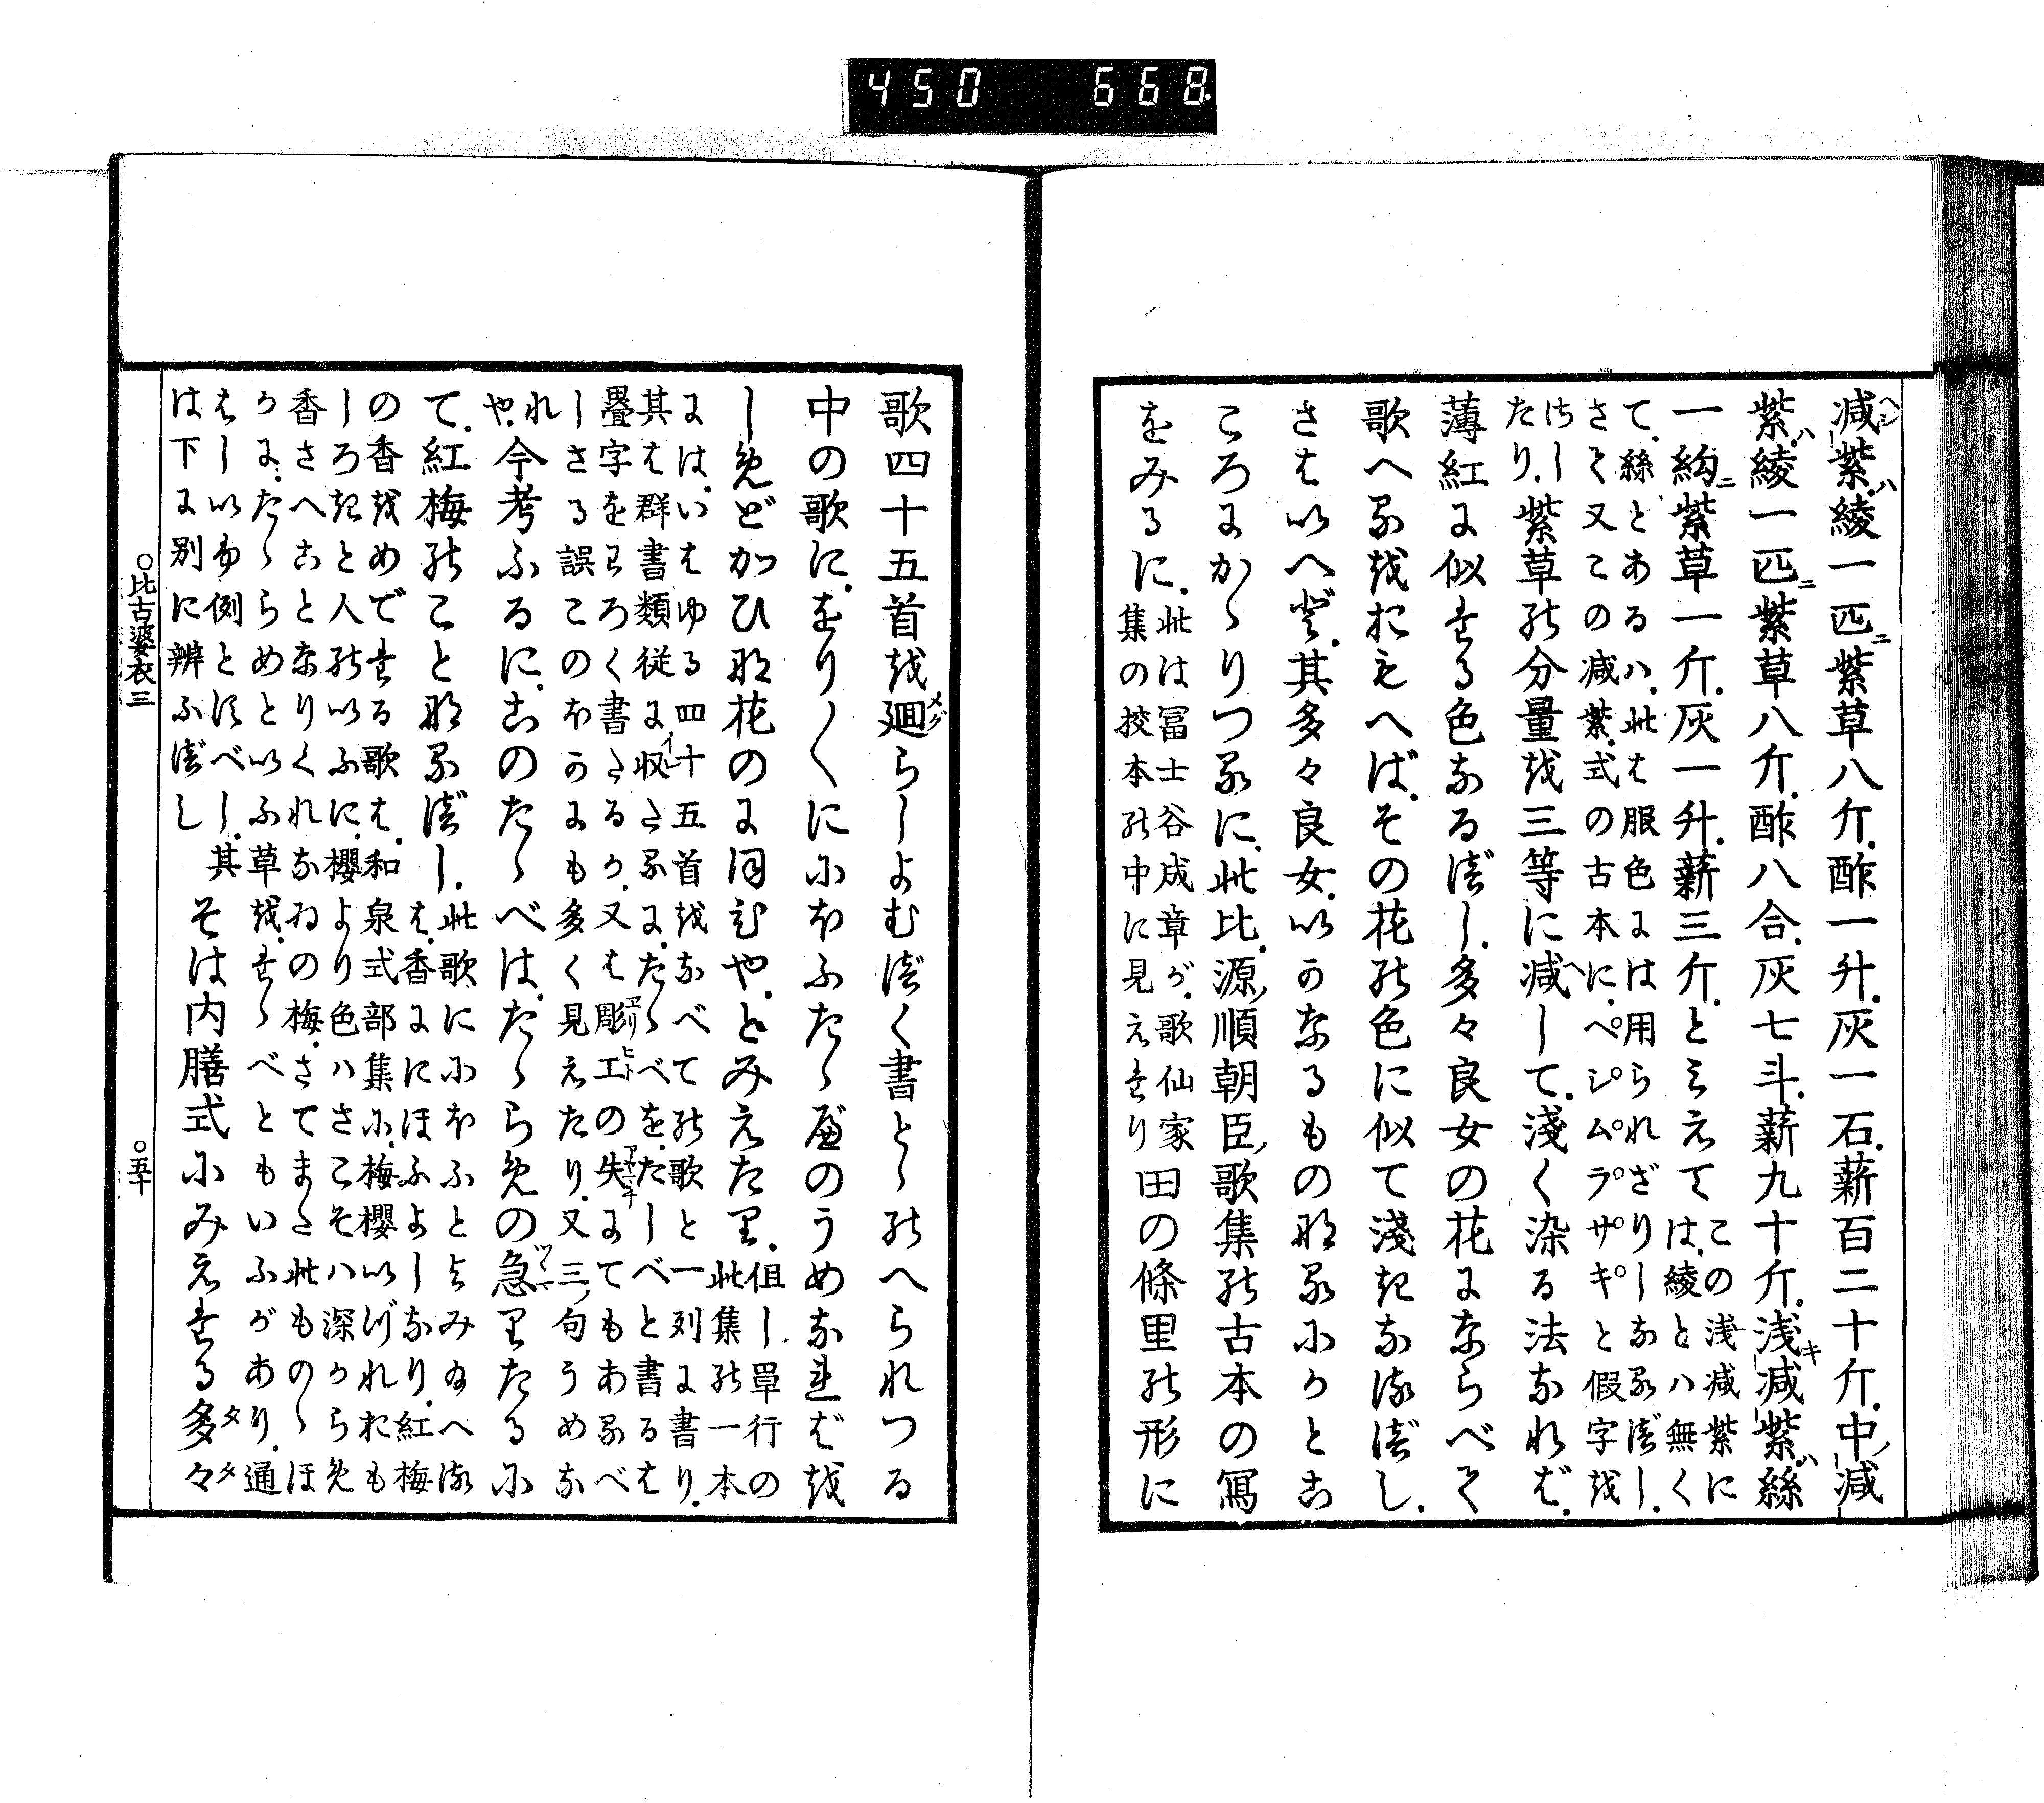 450 668
減紫ハ綾一匹ニ紫草八斤、酢一升、灰一石、薪百二十斤、中ノ減
紫ハ綾一匹ニ紫草八斤、酢八合、灰七斗、薪九十斤、浅キ減紫ハ絲
一絇ニ紫草一斤、灰一升、薪三斤、とミえて
この浅減紫に
は、綾とハ無く
て、絲とあるハ、此は服色には用られざりしなるべし、
さて又この減紫、式の古本に、ペシムラサキと假字を
つけ
たり、紫草の分量を三等に減して、淺く染る法なれば、
薄紅に似たる色なるべし、多々良女の花にならべて
歌へるをおもへば、その花の色に似て淺きなるべし、
さはいへど、其多々良女、いかなるものなるにかとこ
ころにかゝりつるに、此比、源ノ順朝臣ノ歌集の古本の寫
をみるに、
此は冨士谷成章が、歌仙家
集の挍本の中に見えたり
田の條里の形に
歌四十五首を廻らしよむべく書とゝのへられつる
中の歌に、をり〳〵ににほふたゝべのうめなればを
しめどかひな花のに同じや、とみえたり、
但し、單行の
此集の一本
には、いはゆる四十五首をなべての歌と一列に書り、
其は群書類従に収たるに、たゝべを、たしべと書るは
疊字をわろく書たるか、又は彫工の失にてもあるべ
しさる誤このほかにも多く見えたり、又三ノ句うめな
れ
や、今考ふるに、このたゝべは、たゝらめの急りたるに
て、紅梅のことなるべし、
此歌ににほふとよみ給へる
は、香ににほふよしなり、紅梅
の香をめでたる歌は、和泉式部集に、梅櫻いづれおも
しろきと人のいふに、櫻より色ハさこそハ深からめ
香さへことなりくれなゐの梅、さてまた此ものゝほ
かに、たゝらめといふ草を、たゝべともいふがあり、通
はしいふ例とすべし、其
は下に別に辨ふべし
そは内膳式にみえたる多々
○比古婆衣三
○五十